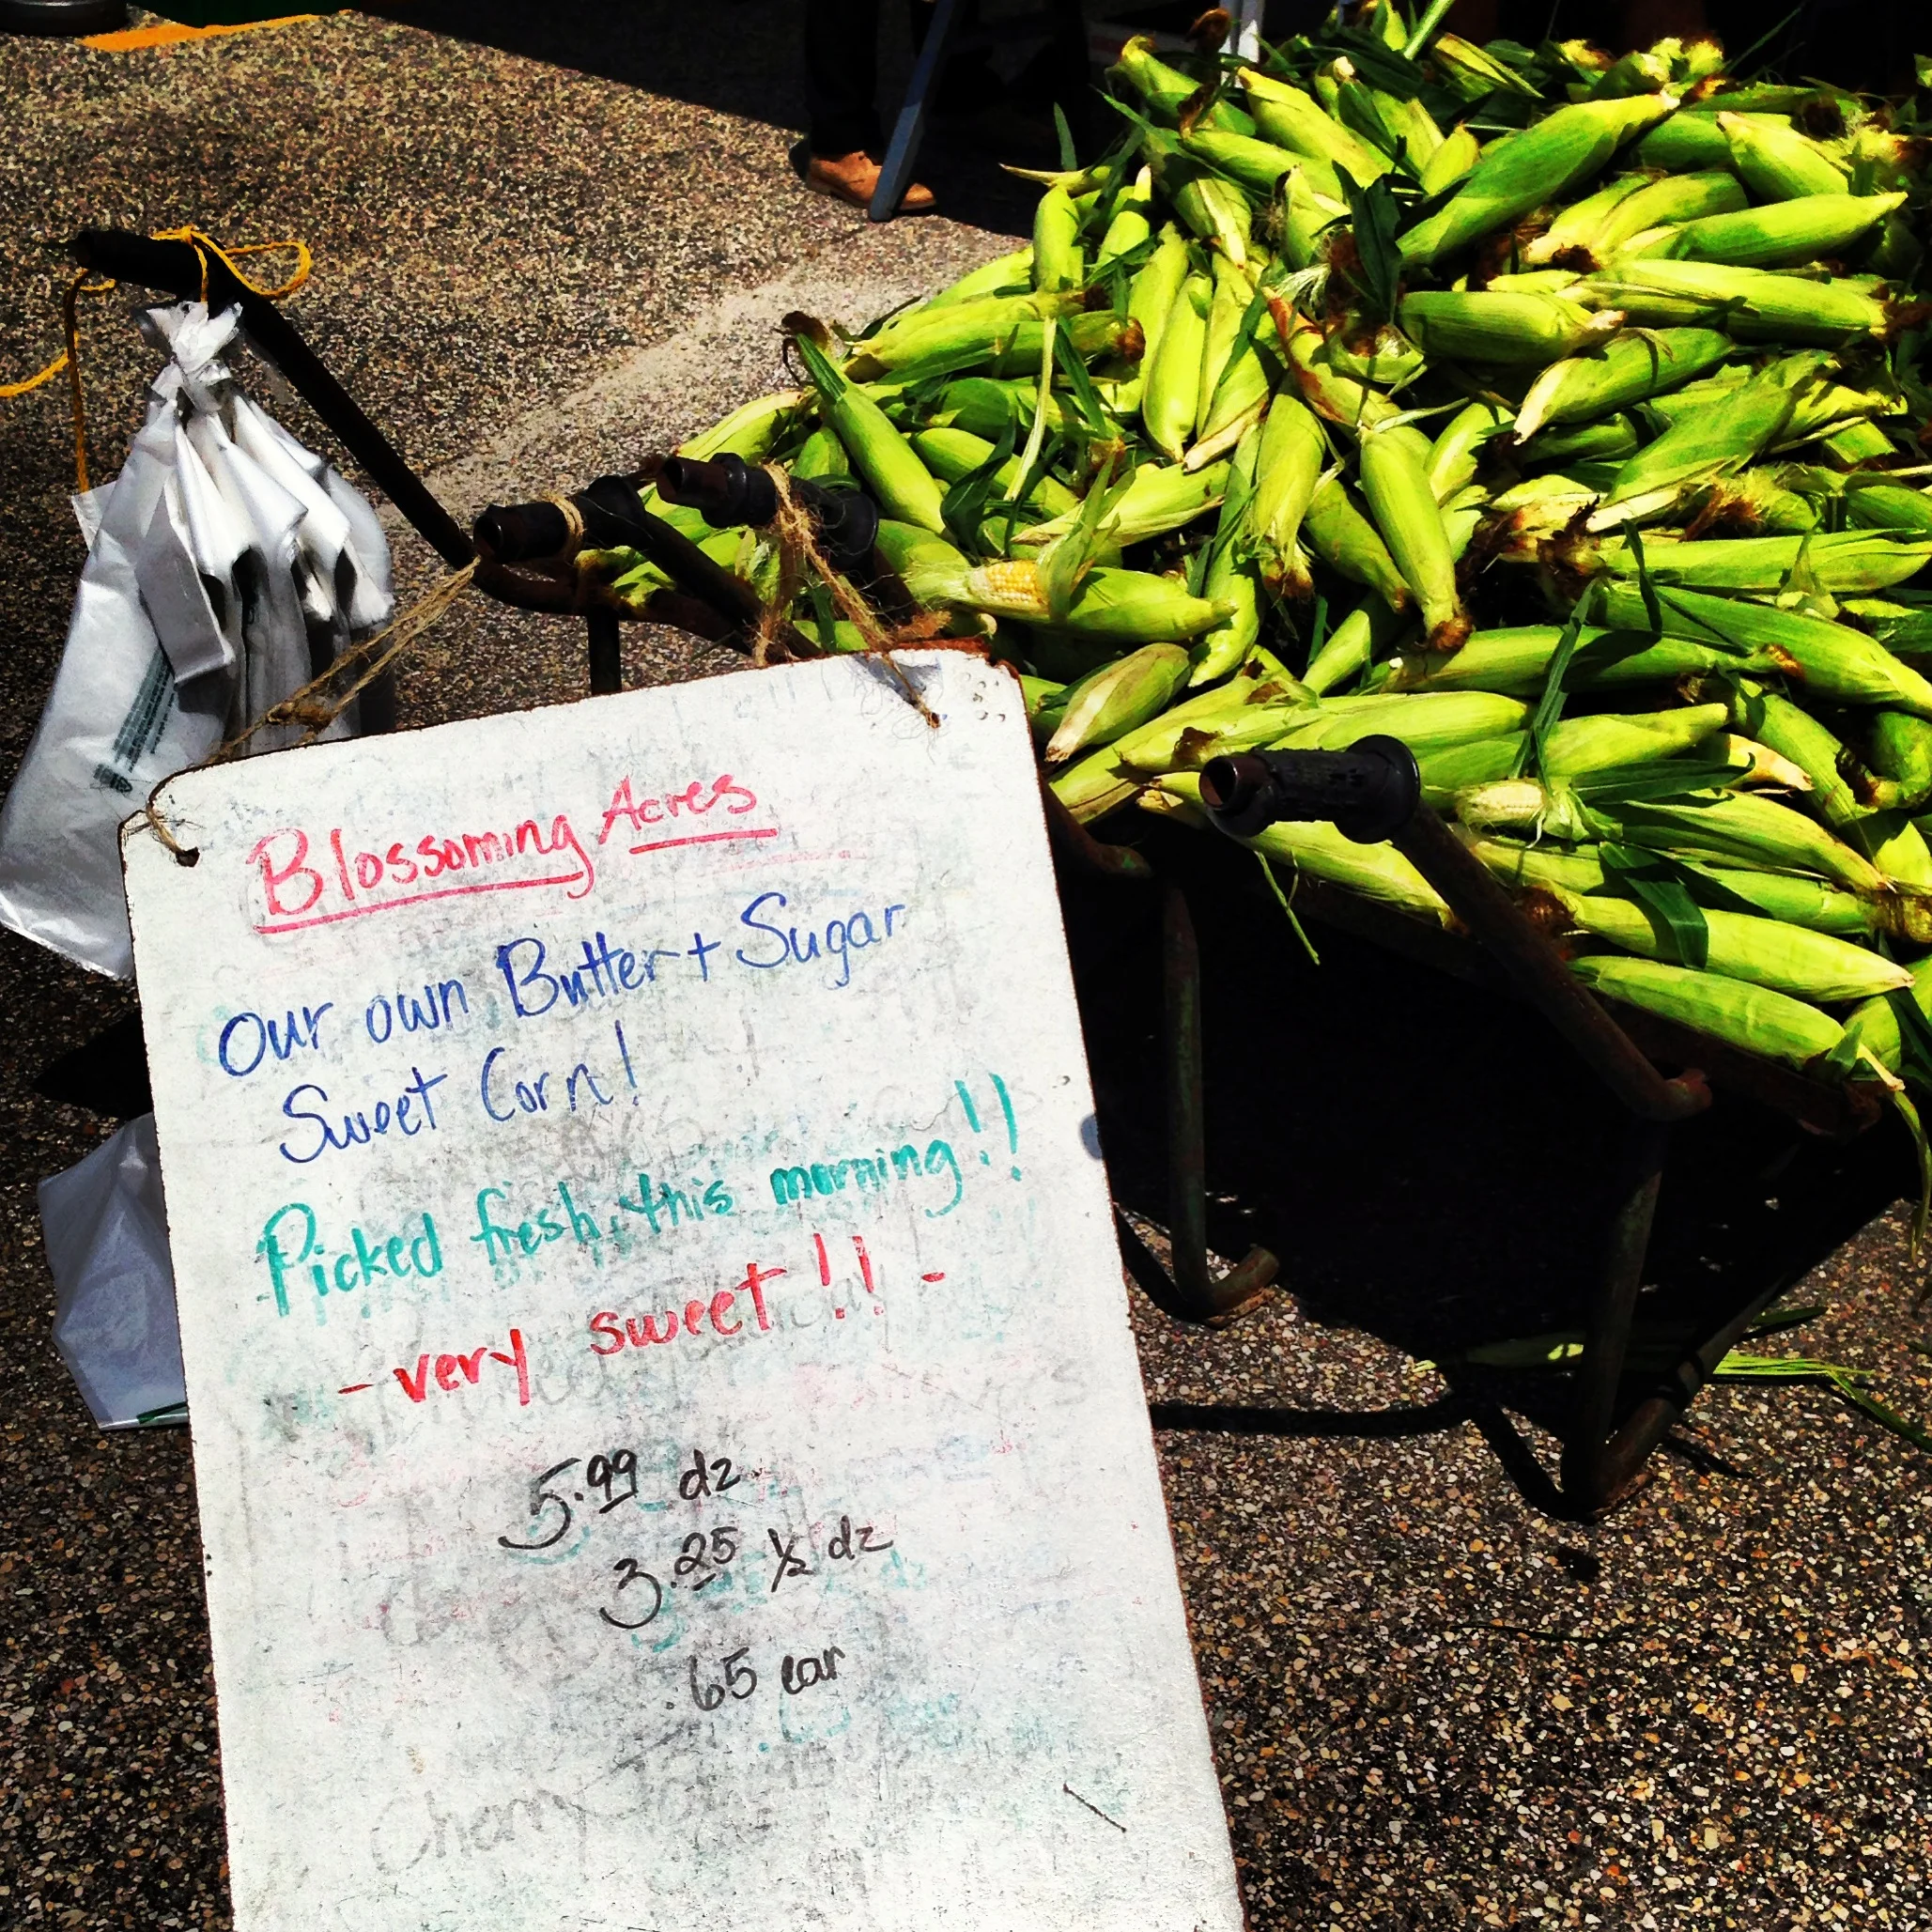 Blossoming Acres
Our own Butter + Sugar
Sweet Corn!
Picked fresh this morning!!
- very sweet!! -
5.99 dz
3.25 ½ dz
.65 ear
Cherry